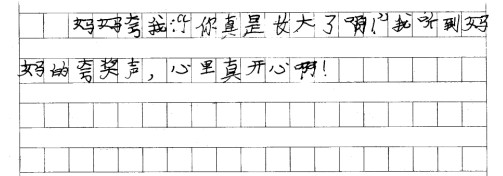 妈妈夸我:“你真是长大了啊!”我听到妈
妈的夸奖声，心里真开心啊!